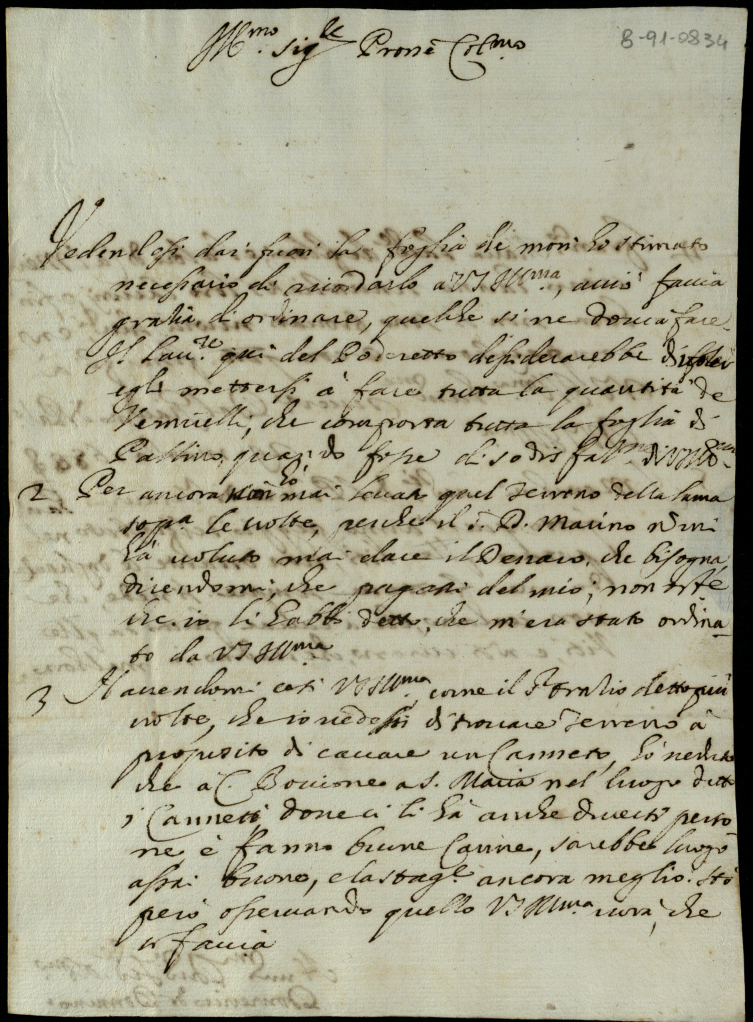 Ill.mo Sig.re Prone Col.mo
8-91-0834
Vedendosi dai fuori la foglia di mori hò stimato
necessario di ricordarlo a VS Ill.ma, acciò faccia
gratia di ordinare, quel che si ne dovrà fare
Il Lau.re qui del Poderetto desiderarebbe
egli mettersi à fare tutta la quantità de
Vermicelli, che comporta tutta la foglia di
Pallino, quando fosse di sodisfat.ne di VS Ill.ma
2 Per ancora non hò mai levar quel Terreno della lama
sop.a le volte, perche il S. D. Marino nò mi
hà voluto mai dare il Denaro, che bisogna,
dicendomi, che pagassi del mio; non ost.e
che io li habbi detto, che m'era stato ordina-
to da VS Ill.ma
3 Havendomi così VS Ill.ma, come il S. Oratio detto più
volte, che io vedessi di trovare Terreno à
proposito di cavare un Canneto, hò veduto
che a C. Boccione a S. Maria nel luogo detto
i Canneti dove ci li hà anche diverse perso
ne, è fanno buone Canne, sarebbe luogo
assai buono, e la stag.e ancora meglio. Stò
però osservando quello VS Ill.ma vorà, che
si faccia